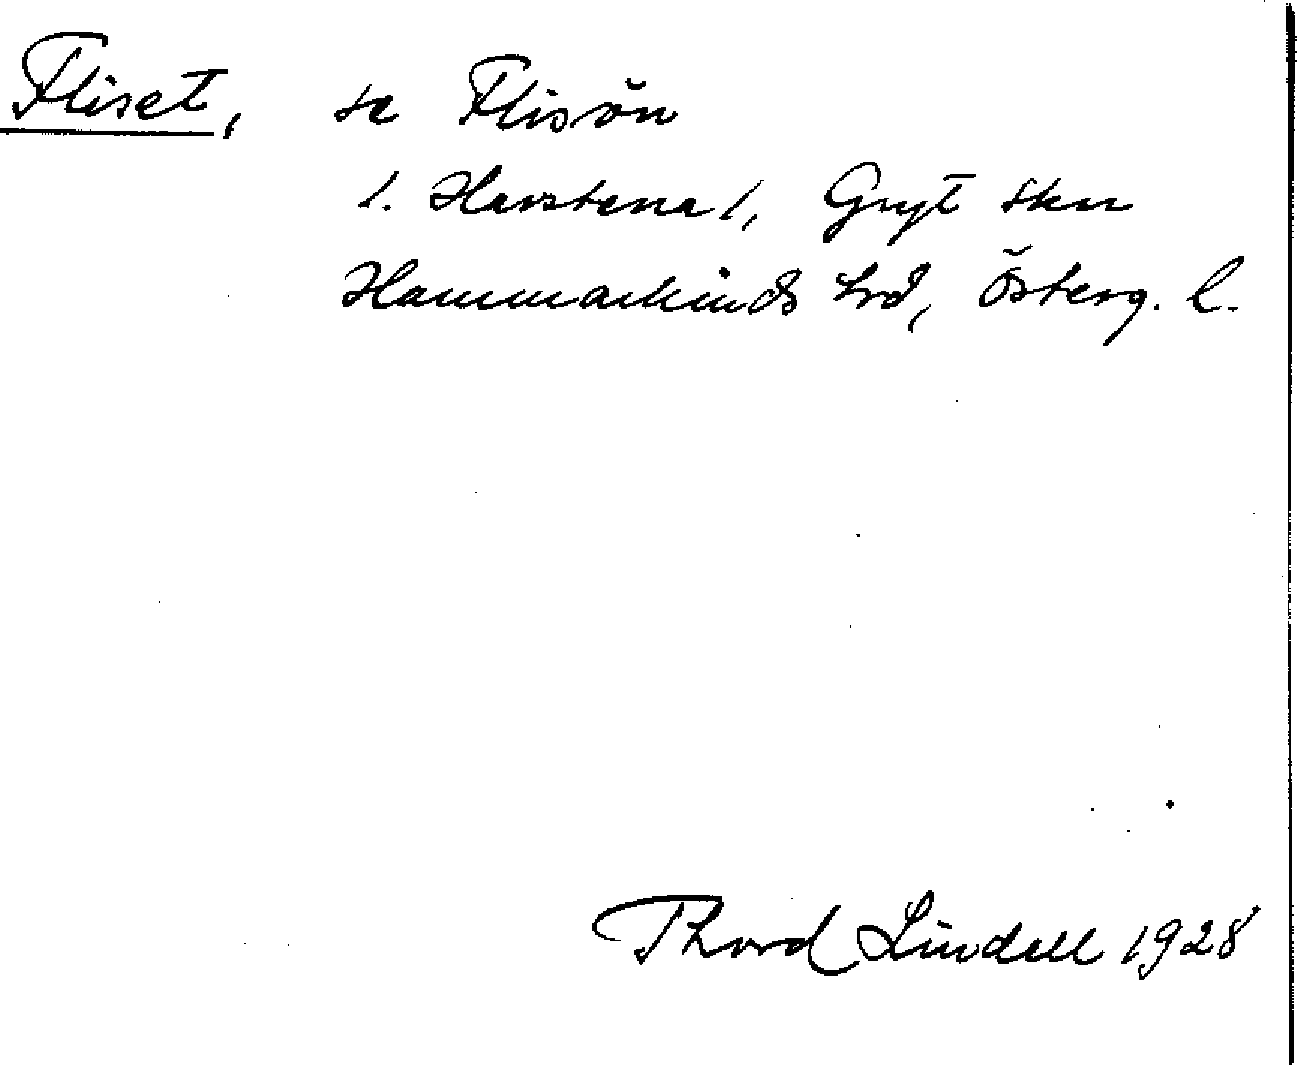 Fliset, se Flisön
1. Harstena 1, Gryt skn
Hammarkinds hrd, Österg. l.
Thord Lindell 1928